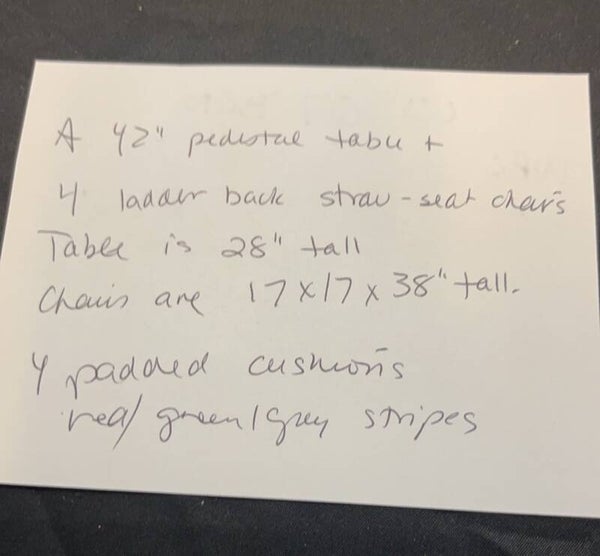 A 42" pedestal table +
4 ladder back straw-seat chairs
Table is 28" tall
Chairs are 17x17x38" tall.
4 padded cushions
red/green/grey stripes